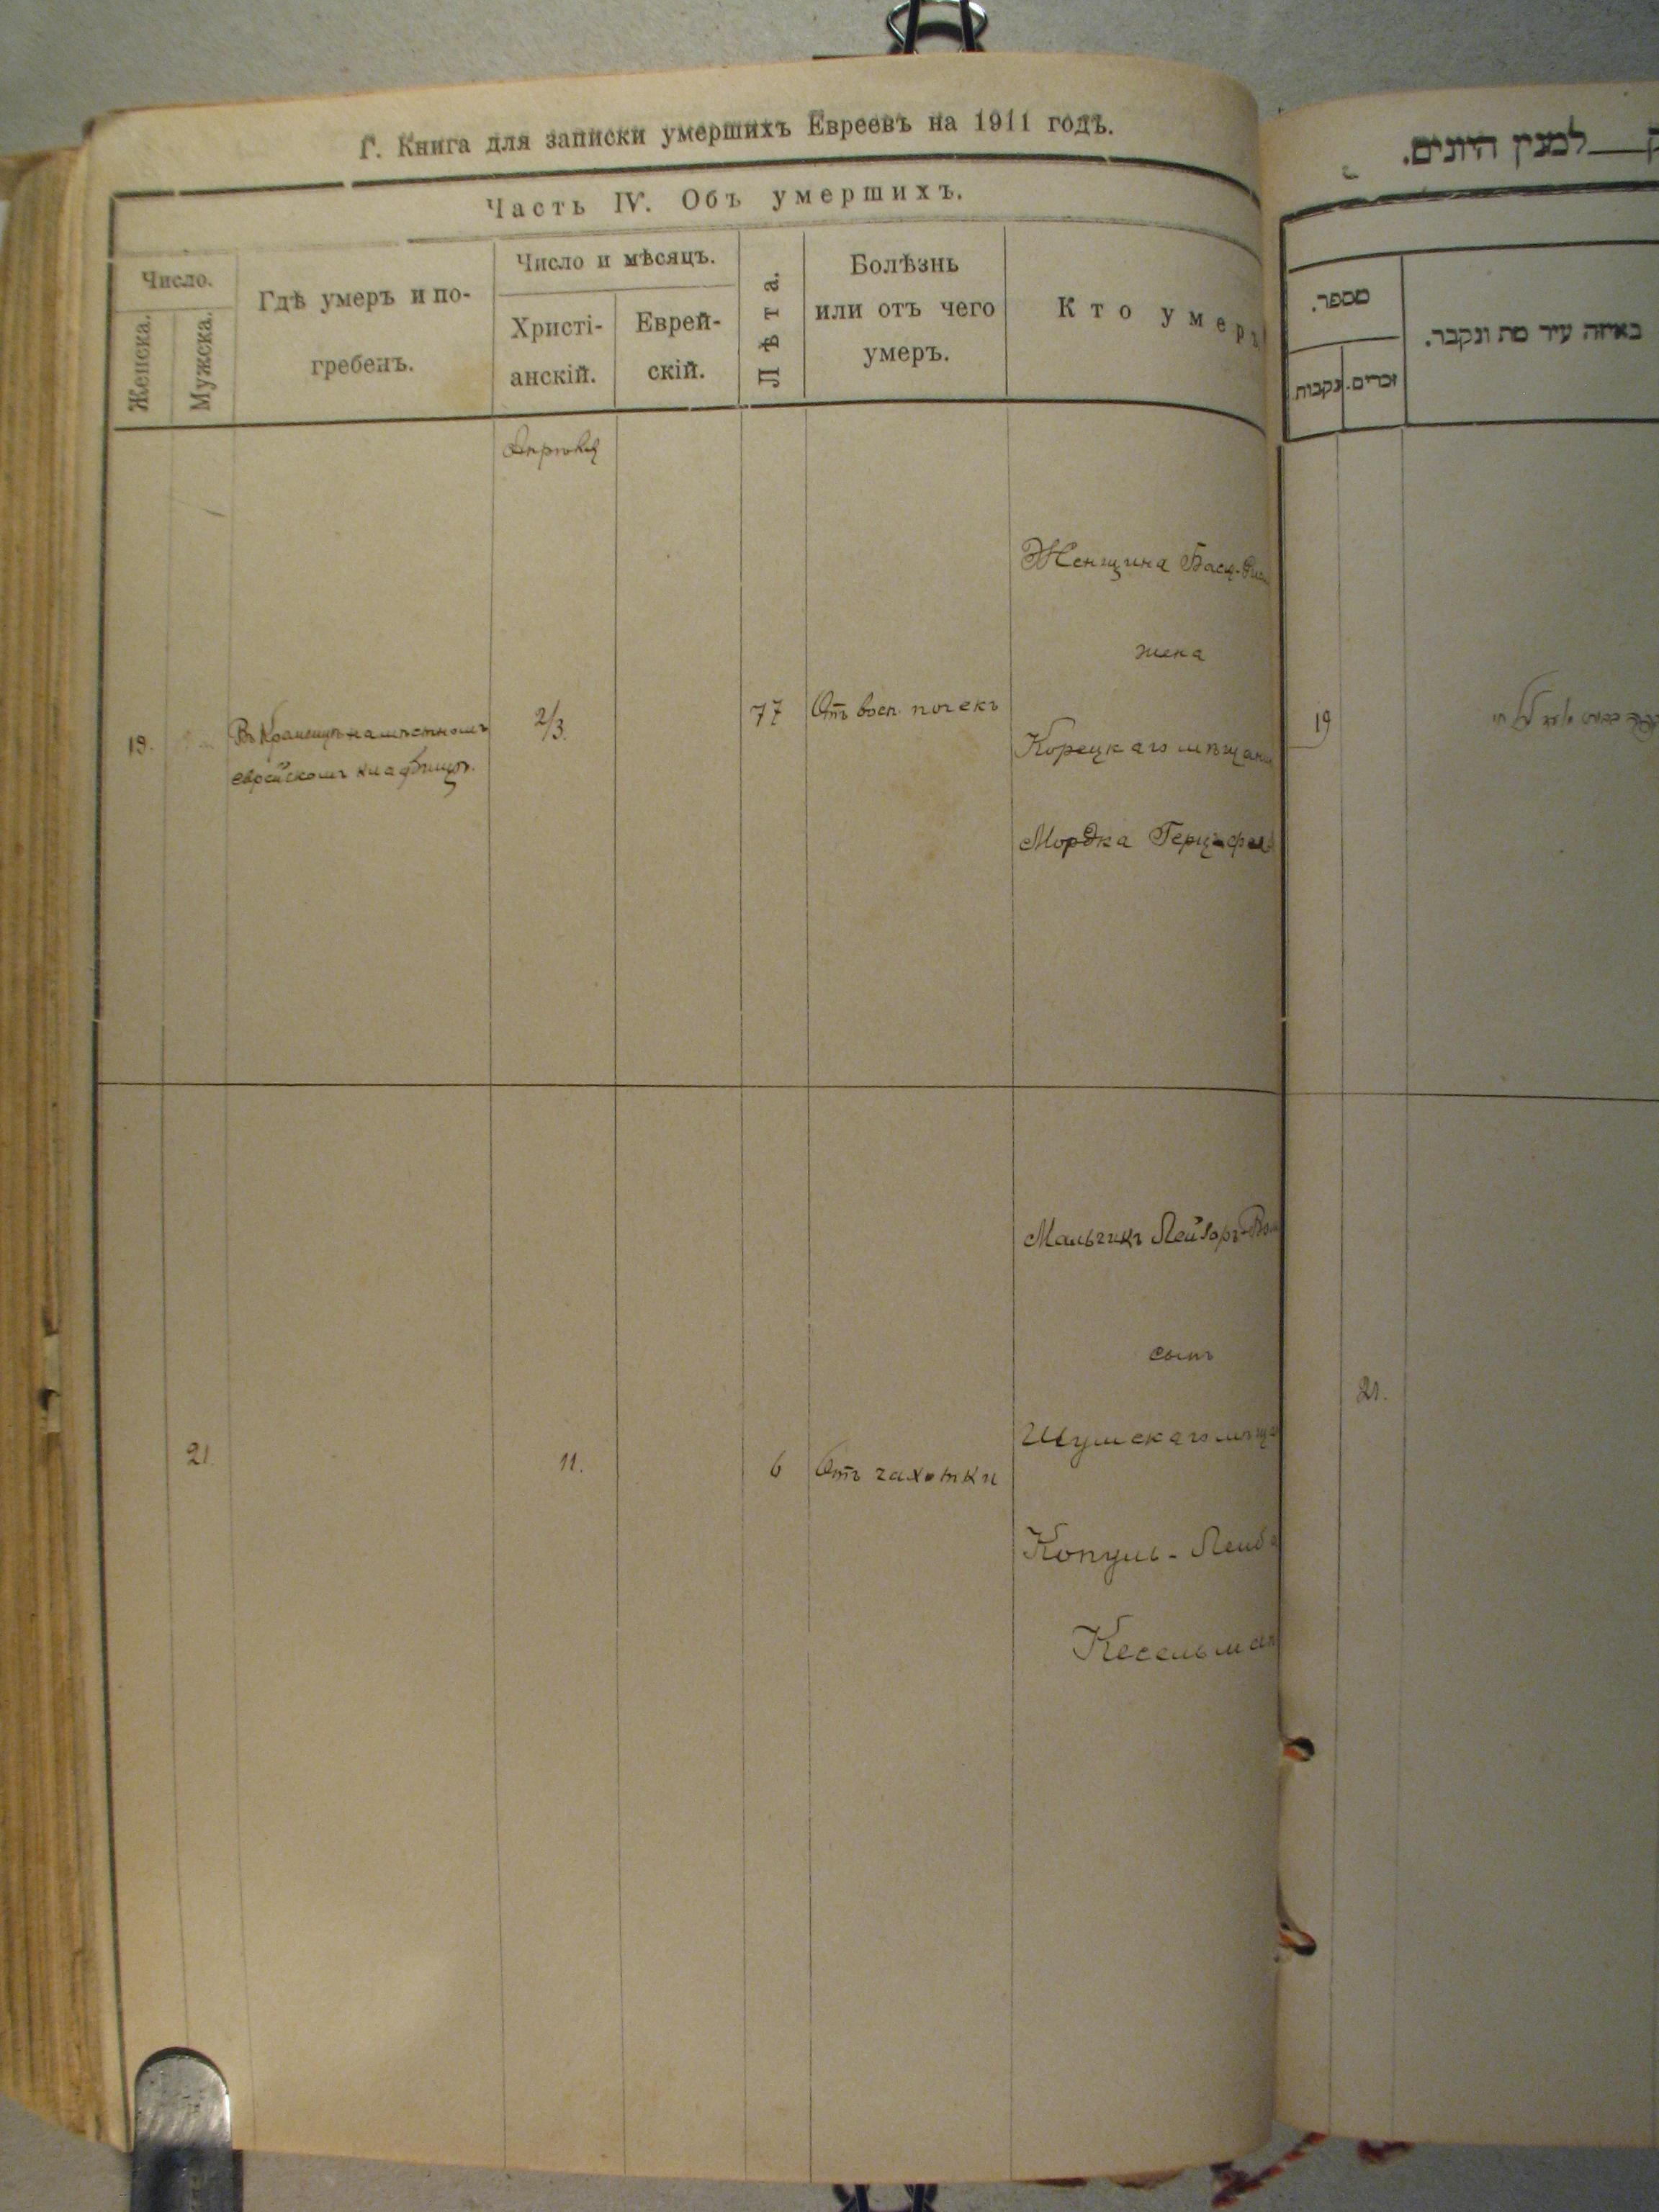 Г. Книга для записки умершихъ Евреевъ на 1911 годъ.
Часть IV. Объ умершихъ.
Число.
Женска.
Мужска.
Гдѣ умеръ и по-
гребенъ.
Число и мѣсяцъ.
Христі-
анскій.
Еврей-
скій.
Лѣта.
Болѣзнь
или отъ чего
умеръ.
Кто умеръ
Апрѣля
19.
на мѣстномъ
еврейскомъ кладбищѣ.
2/3.
77
Отъ восп. почекъ
Женщина Бася-
жена
Корецкаго мѣщани
Мордка
21.
11.
6
Отъ чахотки
Мальчикъ Лейзоръ-
сынъ
Шумскаго мѣща
Копуль-Лейба
Кесельман
למנין היונים.
מספר.
נקבות
זכרים.
באיזה עיר מת ונקבר.
19
21.